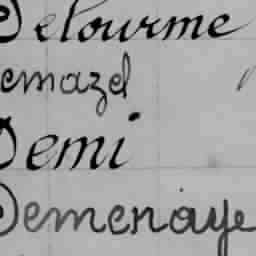 Delourme
emazel
Demi
Demenaye